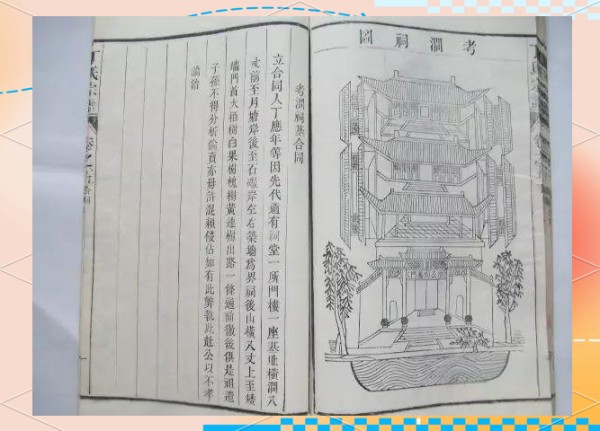 考澗祠圖
考澗祠基合同
立合同人丁應年等因先代遺有祠堂一所門樓一座基址橫濶八
丈前至月塘岸後至石岸左右築墻為界祠後山橫八丈上至矮
墻門首大栢樹白果樹樹黃連樹出路一條通前徹後俱是祖遺
子孫不得分析亦毋混賴侵佔如有此弊執此赴公以不孝
論治
丁氏宗譜
卷之